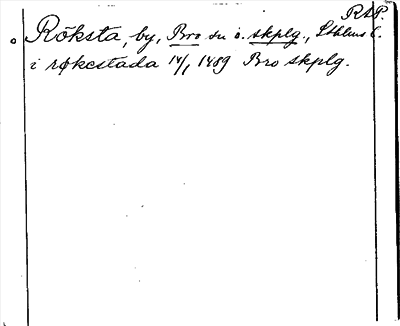 RAP.
Röksta, by, Bro sn o. skplg., Sthlms l.
i røkestada 14/1 1489 Bro skplg.